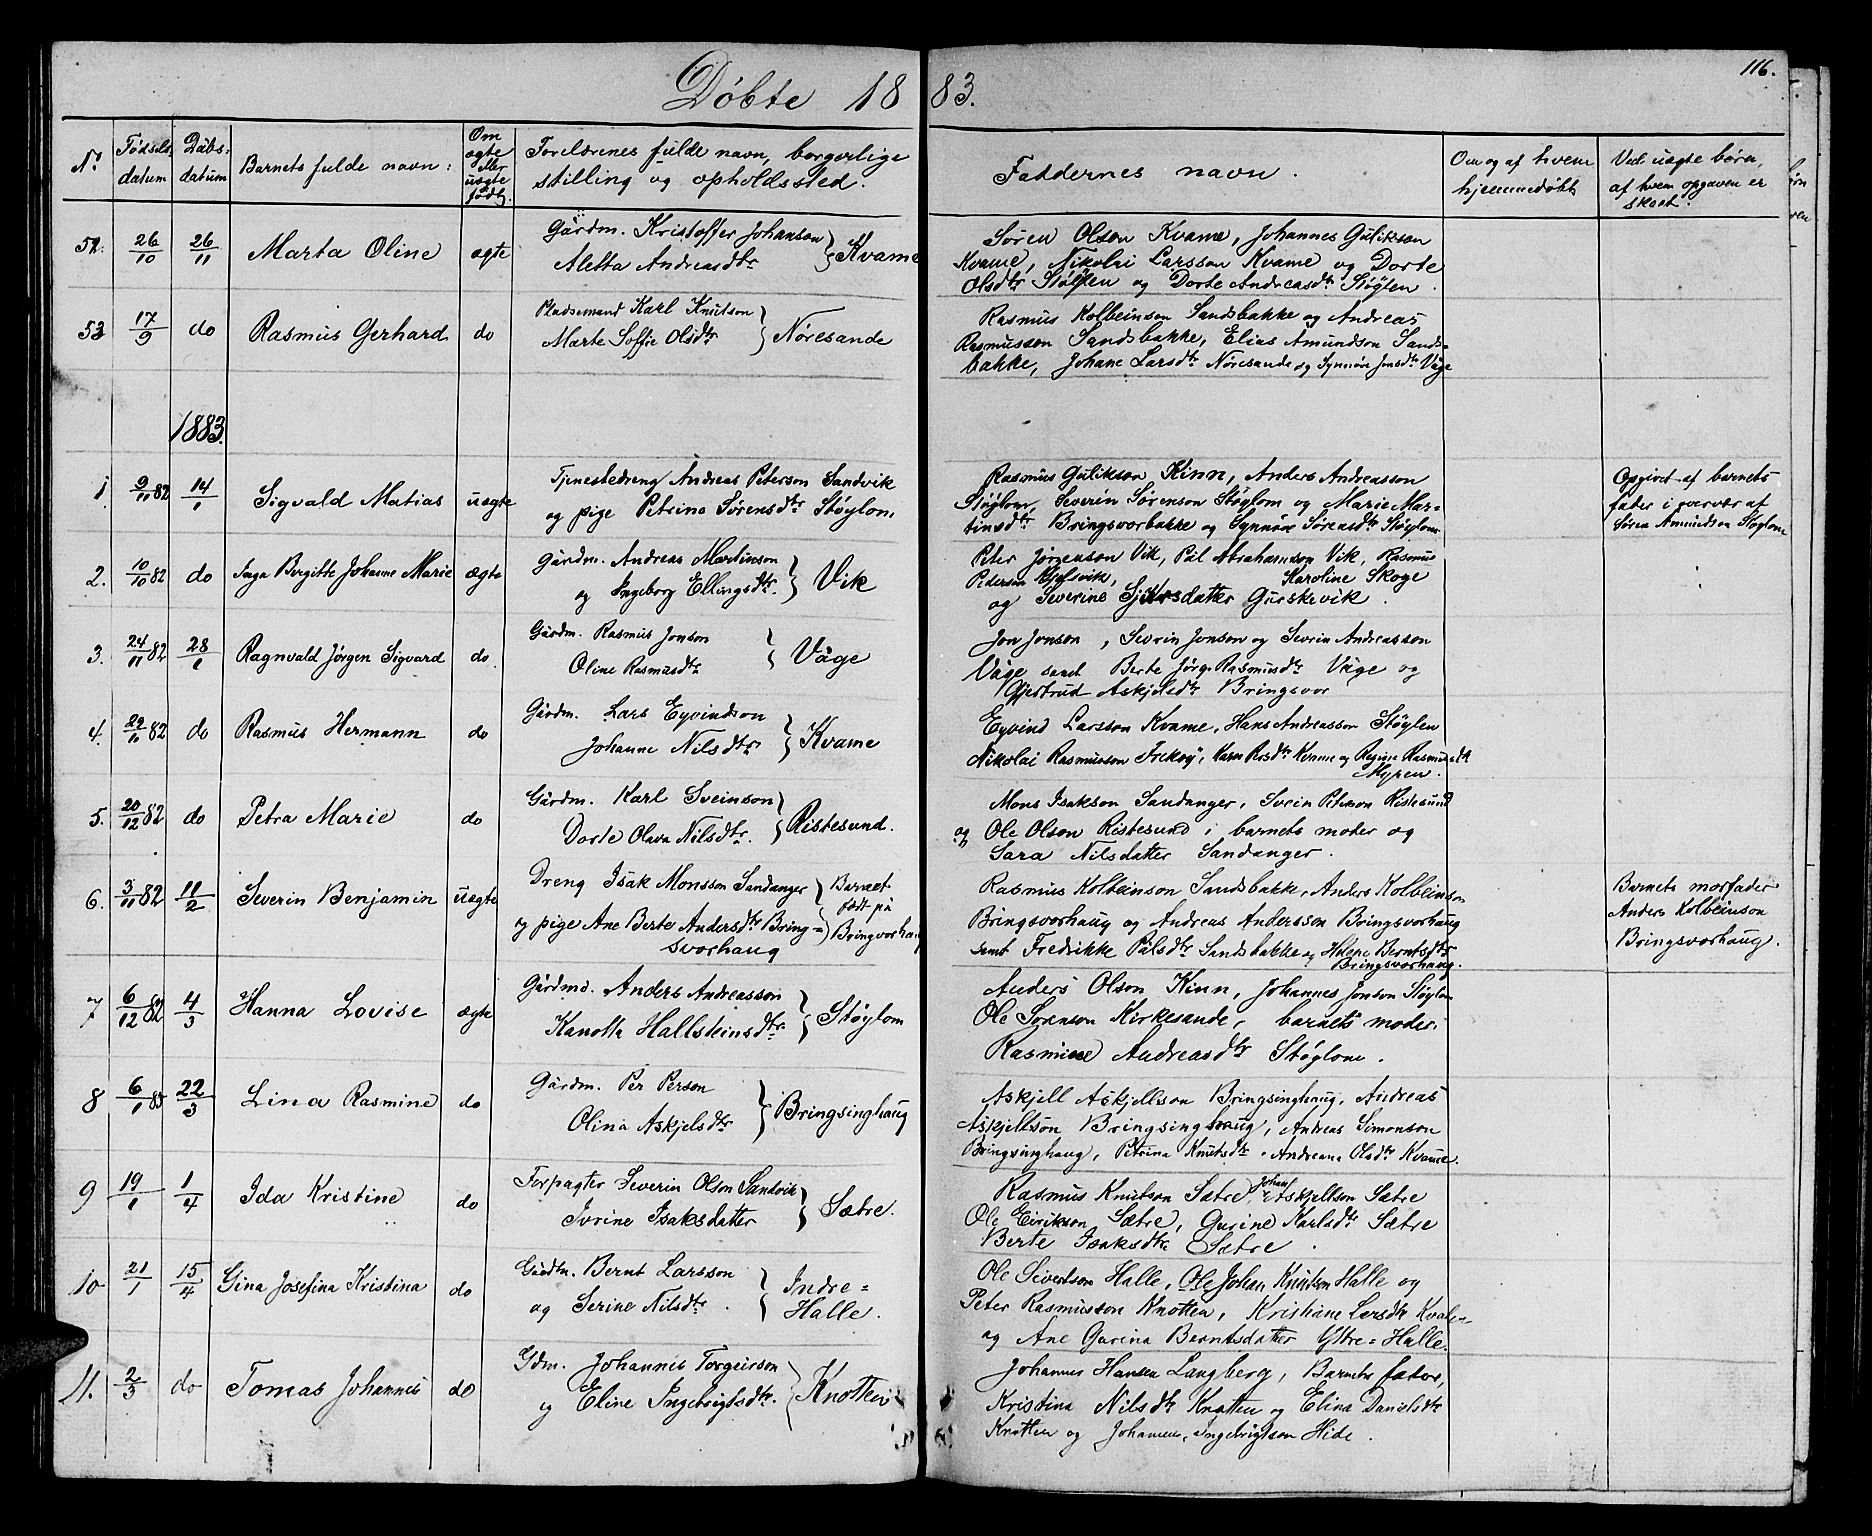 116.
Döbte 1883.
No
Födsels datum
Dåbs datum
Barnets fulde navn:
Om ægte eller uægte födt.
Forældrenes fulde navn, borgerlige stilling og opholdssted.
Faddernes navn.
Om og af hvem hjemmedöbt
Ved uægte börn, af hvem opgaven er skeet.
52. 26/10 26/11 Marta Oline ægte
Gårdm. Kristoffer Johanson
Aletta Andreasdtr } Kvame
Sören Olson Kvame, Johannes Gulikson
Kvame, Nikolai Larsson Kvame og Dorte
Olsdtr Stöylen og Dorte Andreasdtr Stöylen.
53 17/9 do Rasmus Gerhard do
Pladsemand Karl Knutson
Marte Soffie Olsdtr } Nöresande
Rasmus Kolbeinson Sandsbakke og Andreas
Rasmusson Sandsbakke, Elias Amundson Sands-
bakke, Johane Larsdtr Nöresande og Synnöve Jonsdtr Våge
1883.
1 9/11 82 14/1 Sigvald Matias uægte
Tjenestedreng Andreas Peterson Sandvik
og pige Petrina Sörensdtr Stöylom
Rasmus Gulikson Kinn, Anders Andreasson
Stöylom, Severin Sörenson Stöylom og Marie Mar-
tinsdtr Bringsvorbakke og Synnöve Sörensdtr Stöylom
Opgivet af barnets
fader i nærvær af
Sören Amundson Stöylom
2. 10/10 82 do Inga Bergitte Johanne Marie ægte
Gårdm. Andreas Martinson
og Ingeborg Ellingsdtr. } Vik
Peter Jörgenson Vik, Pål Abrahamson Vik, Rasmus
Pederson Kjelsvik, Karoline Skoge
og Severine Sjursdatter Gurskevik.
3. 24/11 82 28/1 Ragnvald Jörgen Sigvard do.
Gårdm. Rasmus Jonson
Oline Rasmusdtr } Våge
Jon Jonson, Sevrin Jonson og Sevrin Andreasson
Våge samt Berte Jörg. Rasmusdtr Våge og
Gjertrud Askjelsdtr Bringsvor
4. 29/10 82 do Rasmus Hermann do
Gårdm. Lars Eyvindson
Johanne Nilsdtr } Kvame
Eyvind Larsson Kvame, Hans Andreasson Stöylen
Nikolai Rasmusson Frekøy, Karn Persdtr Kvame og Regine Rasmusdtr
Myren.
5. 20/12 82 do Petra Marie do
Gårdm. Karl Sveinson
Dorte Olava Nilsdtr. } Ristesund.
Mons Isakson Sandanger, Svein Peterson Ristesund
og Ole Olson Ristesund i barnets moder og
Sara Nilsdatter Sandanger.
6. 3/11 82 11/2 Severin Benjamin uægte
Dreng Isak Monsson Sandanger
og pige Ane Berte Andersdtr Bring-
svorhaug
} Barnet
födt på
Bringvorhaug
Rasmus Kolbeinson Sandsbakk, Anders Kolbeinson
Bringsvorhaug og Andreas Andersson Bringsvorhaug
samt Fredrikke Pålsdtr Sandsbakke og Helene Berntsdtr
Bringsvorhaug.
Barnets morfader
Anders Kolbeinson
Bringsvorhaug.
7 6/12 82 4/3 Hanna Lovise ægte
Gårdmd. Anders Andreasson
Kanotta Hallsteinsdtr. } Stöylom
Anders Olson Kinn, Johannes Jonson Stöylom
Ole Sörenson Kirkesande, barnets moder,
Rasmine Andreasdtr Stöylom.
8 6/1 83 22/3 Lina Rasmine do
Gårdm. Per Person
Olina Askjelsdtr } Bringsinghaug
Askjell Askjellson Bringsinghaug, Andreas
Askjellson Bringsinghaug, Andreas Simonson
Bringsinghaug, Petrina Knutsdtr. Andreana Olsdtr Kvame.
9 19/1 1/4 Ida Kristine do
Forpagter Severin Olson Sandvik
Ivrine Isaksdatter } Sætre.
Rasmus Knutson Sætre, Johan Askjellson Sætre
Ole Eirikson Sætre, Gurine Karlsdtr Sætre
Berte Isaksdtr Sætre.
10 21/1 15/4 Gina Josefina Kristina do
Gårdm. Bernt Larsson
og Serine Nilsdtr. } Indre=
Halle.
Ole Sivertson Halle, Ole Johan Knutson Halle og
Peter Rasmusson Knotten, Kristiane Larsdtr Kvalen
og Ane Gurina Berntsdatter Ytre=Halle.
11. 2/3 do Tomas Johannes do
Gdm. Johannes Torgeirson
og Eline Ingebrigtsdtr. } Knotten
Johannes Hansen Langberg, Barnets fader,
Kristina Nilsdtr Knotten og Elina Danielsdtr
Knotten og Johannes Ingebrigtson Hide.